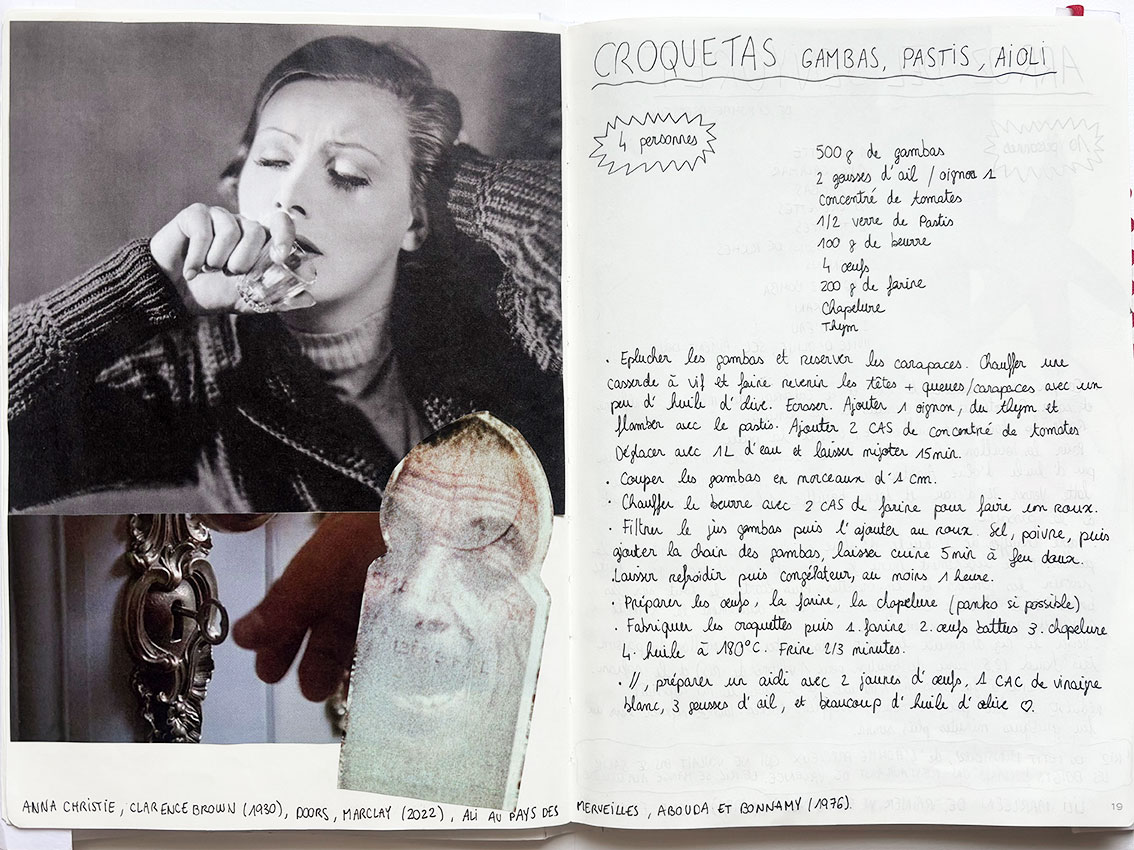 CROQUETAS GAMBAS, PASTIS, AIOLI
4 personnes
500 g de gambas
2 gousses d'ail / oignon 1
Concentré de tomates
1/2 verre de Pastis
100 g de beurre
4 œufs
200 g de farine
Chapelure
Thym
• Eplucher les gambas et reserver les carapaces. Chauffer une
casserole à vif et faire revenir les têtes + queues/carapaces avec un
peu d'huile d'olive. Ecraser. Ajouter 1 oignon, du thym et
flamber avec le pastis. Ajouter 2 CAS de concentré de tomates
Déglacer avec 1L d'eau et laisser mijoter 15min.
• Couper les gambas en morceaux d'1 cm.
• Chauffer le beurre avec 2 CAS de farine pour faire un roux.
• Filtrer le jus gambas puis l'ajouter au roux. Sel, poivre, puis
ajouter la chair des gambas, laisser cuire 5min à feu doux.
Laisser refroidir puis congélateur, au moins 1 heure.
• Préparer les œufs, la farine, la chapelure (panko si possible)
• Fabriquer les croquettes puis 1. farine 2. œufs battus 3. chapelure
4. huile à 180°C. Frire 2/3 minutes.
• //, préparer un aioli avec 2 jaunes d'œufs, 1 CAC de vinaigre
blanc, 3 gousses d'ail, et beaucoup d'huile d'olive ♡.
ANNA CHRISTIE, CLARENCE BROWN (1930), DOORS, MARCLAY (2022), ALI AU PAYS DES MERVEILLES, ABOUDA ET BONNAMY (1976).
19